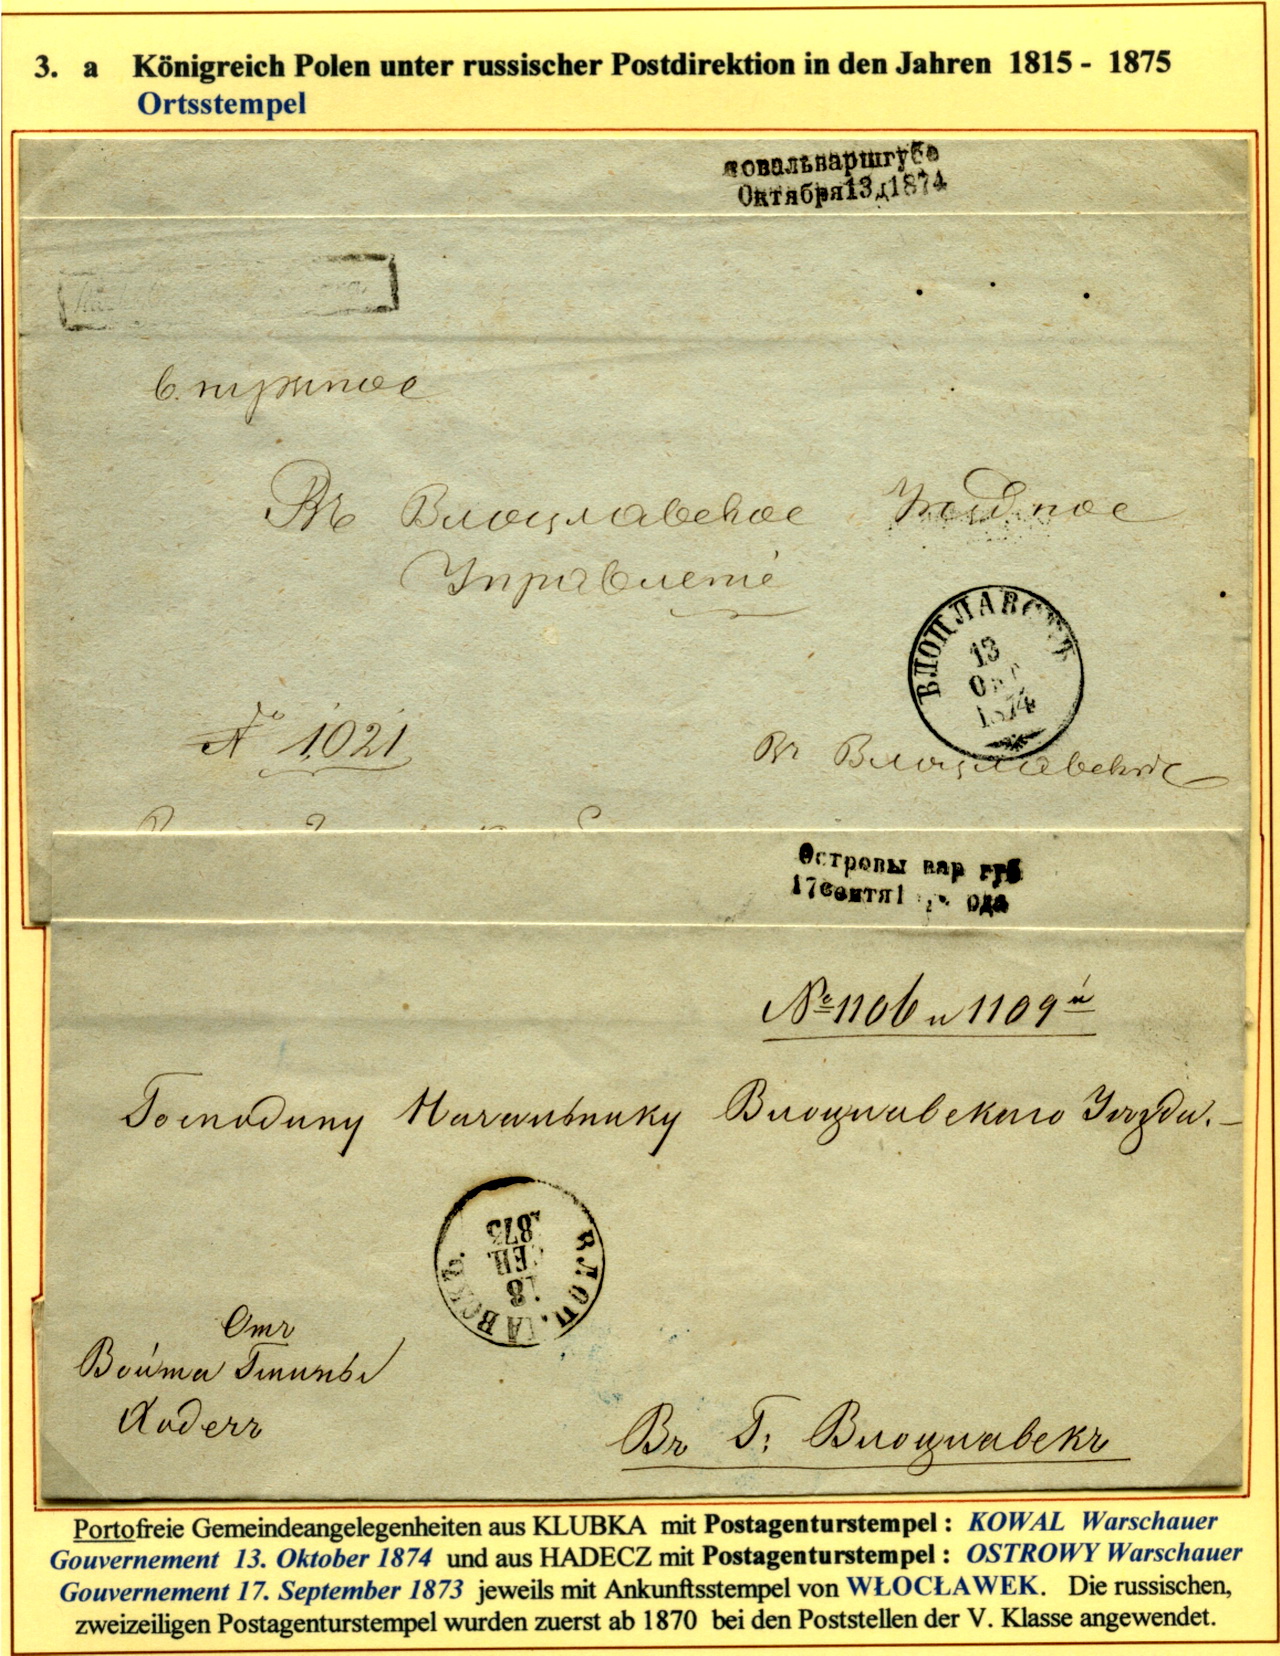 3. a Königreich Polen unter russischer Postdirektion in den Jahren 1815 - 1875
Ortsstempel
ковальваршгубе
Октября13д1874
Въ Влоцлавское Уѣздное
Управленіе
ВЛОЦЛАВСКЪ
13
ОКТ
1874
№ 1021
Въ Влоцлавскѣ
Островы вар губ
17сентя
№ 1106 и 1109 й
Господину Начальнику Влоцлавскаго Уѣзда.
ВЛОЦЛАВСКЪ.
18
СЕН
1873
Отъ
Войта Гмины
Ходечъ
Въ Г: Влоцлавскъ
Portofreie Gemeindeangelegenheiten aus KLUBKA mit Postagenturstempel : KOWAL Warschauer
Gouvernement 13. Oktober 1874 und aus HADECZ mit Postagenturstempel : OSTROWY Warschauer
Gouvernement 17. September 1873 jeweils mit Ankunftsstempel von WŁOCŁAWEK. Die russischen,
zweizeiligen Postagenturstempel wurden zuerst ab 1870 bei den Poststellen der V. Klasse angewendet.